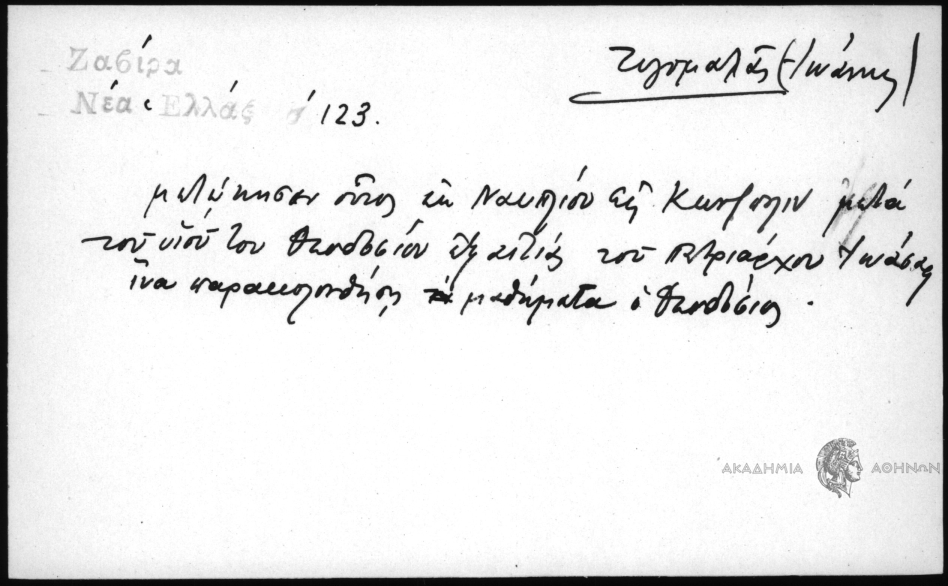 Ζαβίρα
Νέα Ελλάς σ 123.
Ζυγομαλᾶς (Ἰωάννης)
μετώκησεν οὗτος ἐκ Ναυπλίου εἰς Κωνζπολιν μετά
τοῦ υἱοῦ του Θεοδοσίου ἐξ αἰτίας τοῦ Πατριάρχου Ἰωάσαφ
ἵνα παρακολουθήσῃ τὰ μαθήματα ὁ Θεοδόσιος.
ΑΚΑΔΗΜΙΑ ΑΘΗΝΩΝ